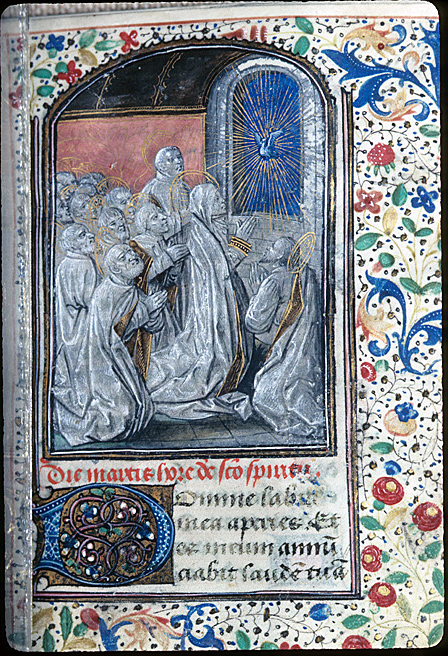 Die martis hore de sco spiritu.
Domine labia
mea aperies. Et
os meum annũ
ciabit laudẽ tuã